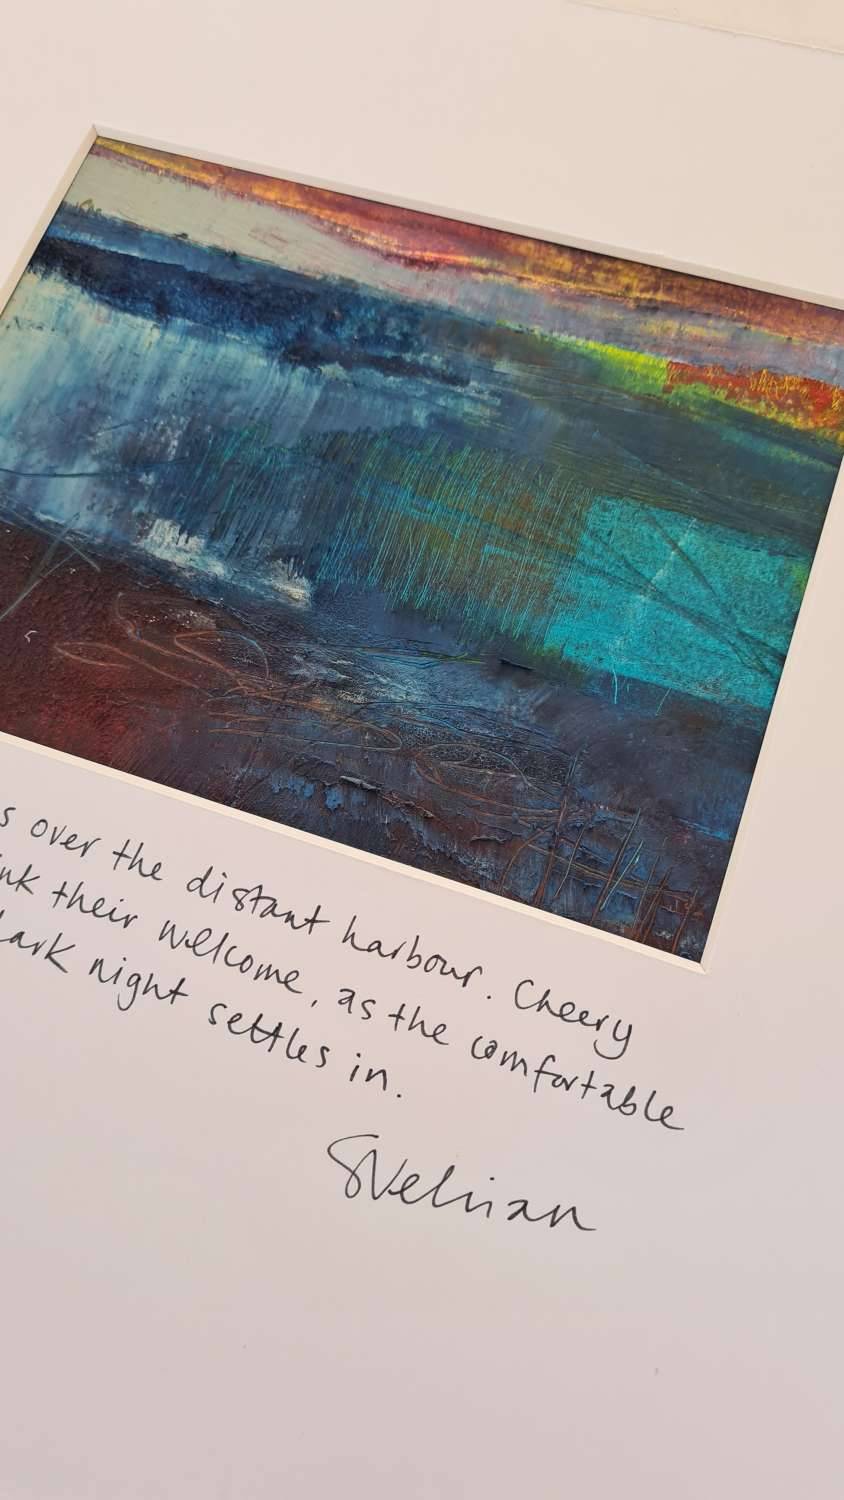 s over the distant harbour. Cheery
nk their welcome, as the comfortable
ark night settles in.
SVelrian